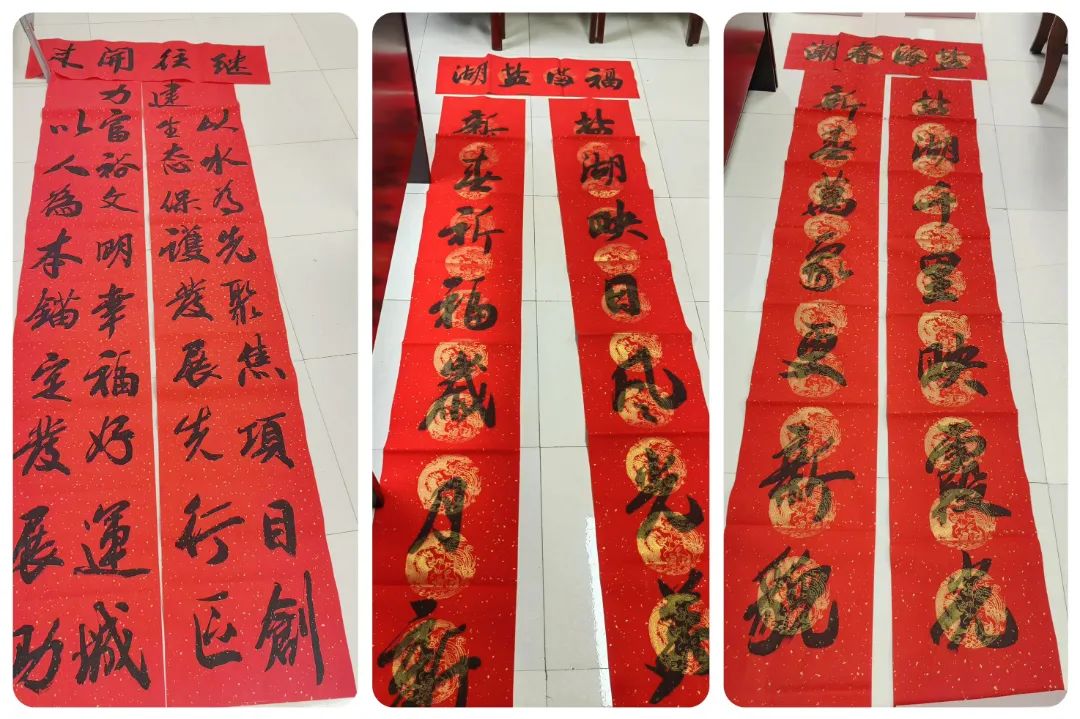 继往開来
以水為先聚焦項目創
建生态保護發展先行区
以人為本錨定發展助
力富裕文明幸福好運城
福满盐湖
盐湖映日风光美
新春祈福歲月新
盐海春潮
盐湖千里映霞光
新春萬象更新貌